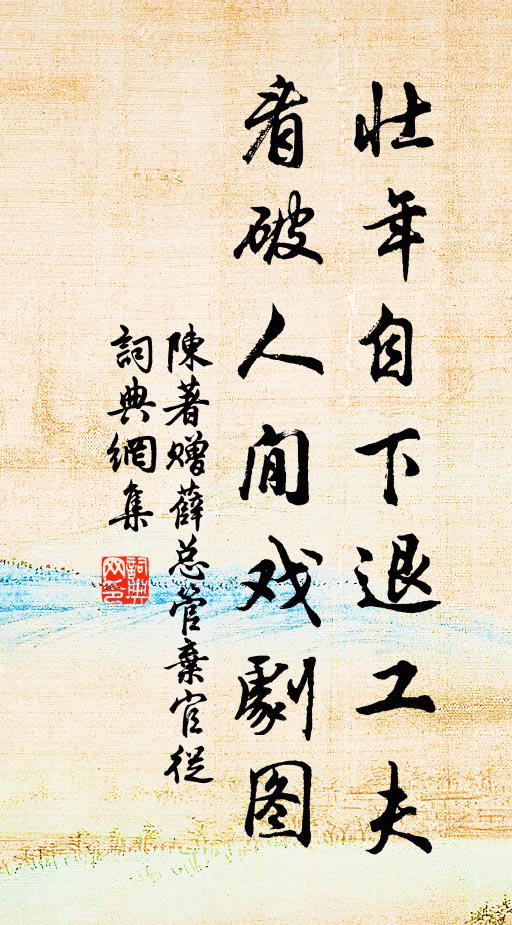 壮年自下退工夫
看破人间戏劇图
陳著贈薛总管棄官從
詞典網集
詞典
网